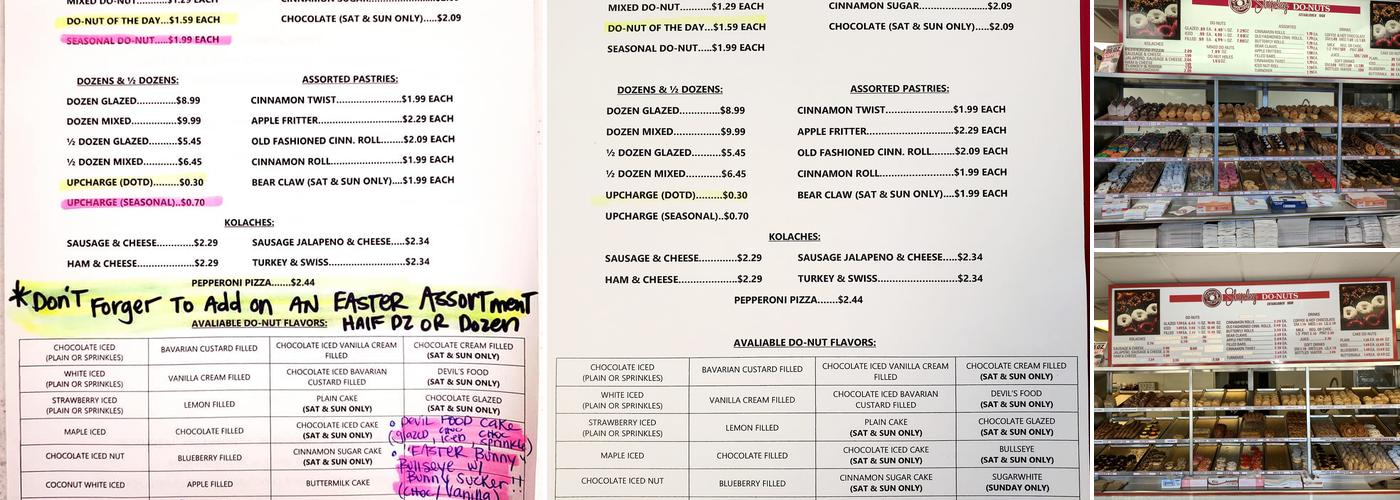 DO-NUT OF THE DAY...$1.59 EACH
CHOCOLATE (SAT & SUN ONLY).....$2.09
SEASONAL DO-NUT.....$1.99 EACH
DOZENS & ½ DOZENS:
ASSORTED PASTRIES:
DOZEN GLAZED.............$8.99
CINNAMON TWIST.....................$1.99 EACH
DOZEN MIXED..............$9.99
APPLE FRITTER........................$2.29 EACH
½ DOZEN GLAZED.......$5.45
OLD FASHIONED CINN. ROLL.......$2.09 EACH
½ DOZEN MIXED........$6.45
CINNAMON ROLL.....................$1.99 EACH
UPCHARGE (DOTD).........$0.30
BEAR CLAW (SAT & SUN ONLY)....$1.99 EACH
UPCHARGE (SEASONAL)..$0.70
KOLACHES:
SAUSAGE & CHEESE.............$2.29
SAUSAGE JALAPENO & CHEESE.....$2.34
HAM & CHEESE..................$2.29
TURKEY & SWISS.......................$2.34
PEPPERONI PIZZA.......$2.44
*Don'T Forger To Add on AN EASTER ASSORTmenT
HALF DZ OR Dozen
AVALIABLE DO-NUT FLAVORS:
CHOCOLATE ICED
(PLAIN OR SPRINKLES)
BAVARIAN CUSTARD FILLED
CHOCOLATE ICED VANILLA CREAM
FILLED
CHOCOLATE CREAM FILLED
(SAT & SUN ONLY)
WHITE ICED
(PLAIN OR SPRINKLES)
VANILLA CREAM FILLED
CHOCOLATE ICED BAVARIAN
CUSTARD FILLED
DEVIL'S FOOD
(SAT & SUN ONLY)
STRAWBERRY ICED
(PLAIN OR SPRINKLES)
LEMON FILLED
PLAIN CAKE
(SAT & SUN ONLY)
CHOCOLATE GLAZED
(SAT & SUN ONLY)
MAPLE ICED
CHOCOLATE FILLED
CHOCOLATE ICED CAKE
(SAT & SUN ONLY)
DEVIL FOOD CAKE
(glazed, choc iced, choc sprinkle)
CHOCOLATE ICED NUT
BLUEBERRY FILLED
CINNAMON SUGAR CAKE
(SAT & SUN ONLY)
"EASTER Bunny"
Bullseye w/
Bunny Sucker!!
(choc/vanilla)
COCONUT WHITE ICED
APPLE FILLED
BUTTERMILK CAKE
MIXED DO-NUT...........$1.29 EACH
CINNAMON SUGAR.....................$2.09
DO-NUT OF THE DAY...$1.59 EACH
CHOCOLATE (SAT & SUN ONLY).....$2.09
SEASONAL DO-NUT.....$1.99 EACH
DOZENS & ½ DOZENS:
ASSORTED PASTRIES:
DOZEN GLAZED.............$8.99
CINNAMON TWIST.....................$1.99 EACH
DOZEN MIXED..............$9.99
APPLE FRITTER........................$2.29 EACH
½ DOZEN GLAZED.......$5.45
OLD FASHIONED CINN. ROLL.......$2.09 EACH
½ DOZEN MIXED........$6.45
CINNAMON ROLL.....................$1.99 EACH
UPCHARGE (DOTD).........$0.30
BEAR CLAW (SAT & SUN ONLY)....$1.99 EACH
UPCHARGE (SEASONAL)..$0.70
KOLACHES:
SAUSAGE & CHEESE.............$2.29
SAUSAGE JALAPENO & CHEESE.....$2.34
HAM & CHEESE..................$2.29
TURKEY & SWISS.......................$2.34
PEPPERONI PIZZA.......$2.44
AVALIABLE DO-NUT FLAVORS:
CHOCOLATE ICED
(PLAIN OR SPRINKLES)
BAVARIAN CUSTARD FILLED
CHOCOLATE ICED VANILLA CREAM
FILLED
CHOCOLATE CREAM FILLED
(SAT & SUN ONLY)
WHITE ICED
(PLAIN OR SPRINKLES)
VANILLA CREAM FILLED
CHOCOLATE ICED BAVARIAN
CUSTARD FILLED
DEVIL'S FOOD
(SAT & SUN ONLY)
STRAWBERRY ICED
(PLAIN OR SPRINKLES)
LEMON FILLED
PLAIN CAKE
(SAT & SUN ONLY)
CHOCOLATE GLAZED
(SAT & SUN ONLY)
MAPLE ICED
CHOCOLATE FILLED
CHOCOLATE ICED CAKE
(SAT & SUN ONLY)
BULLSEYE
(SAT & SUN ONLY)
CHOCOLATE ICED NUT
BLUEBERRY FILLED
CINNAMON SUGAR CAKE
(SAT & SUN ONLY)
SUGARWHITE
(SUNDAY ONLY)
Shipley DO-NUTS
Shipley DO-NUTS